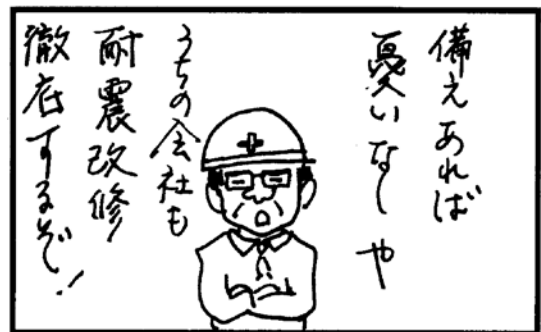 備えあれば
憂いなしや
うちの会社も
耐震改修
徹底するぞ!